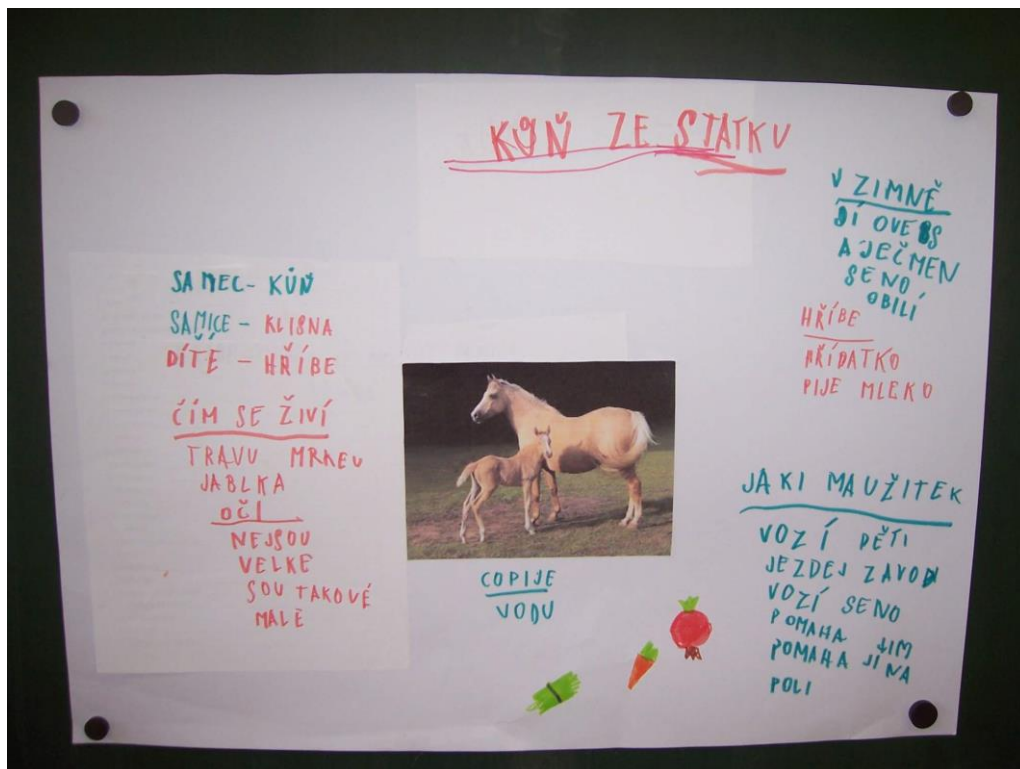 KŮŇ ZE STATKU
SAMEC - KŮŇ
SAMICE - KLISNA
DÍTĚ - HŘÍBE
ČÍM SE ŽIVÍ
TRAVU MRKEV
JABLKA
OČI
NEJSOU
VELKE
SOU TAKOVÉ
MALÉ
COPIJE
VODU
V ZIMNĚ
JÍ OVES
A JEČMEN
SENO
OBILÍ
HŘÍBE
HŘÍBATKO
PIJE MLEKO
JAKI MAUŽITEK
VOZÍ DĚTI
JEZDEJ ZAVODI
VOZÍ SENO
POMAHA JIM
POMAHA JÍ NA
POLI